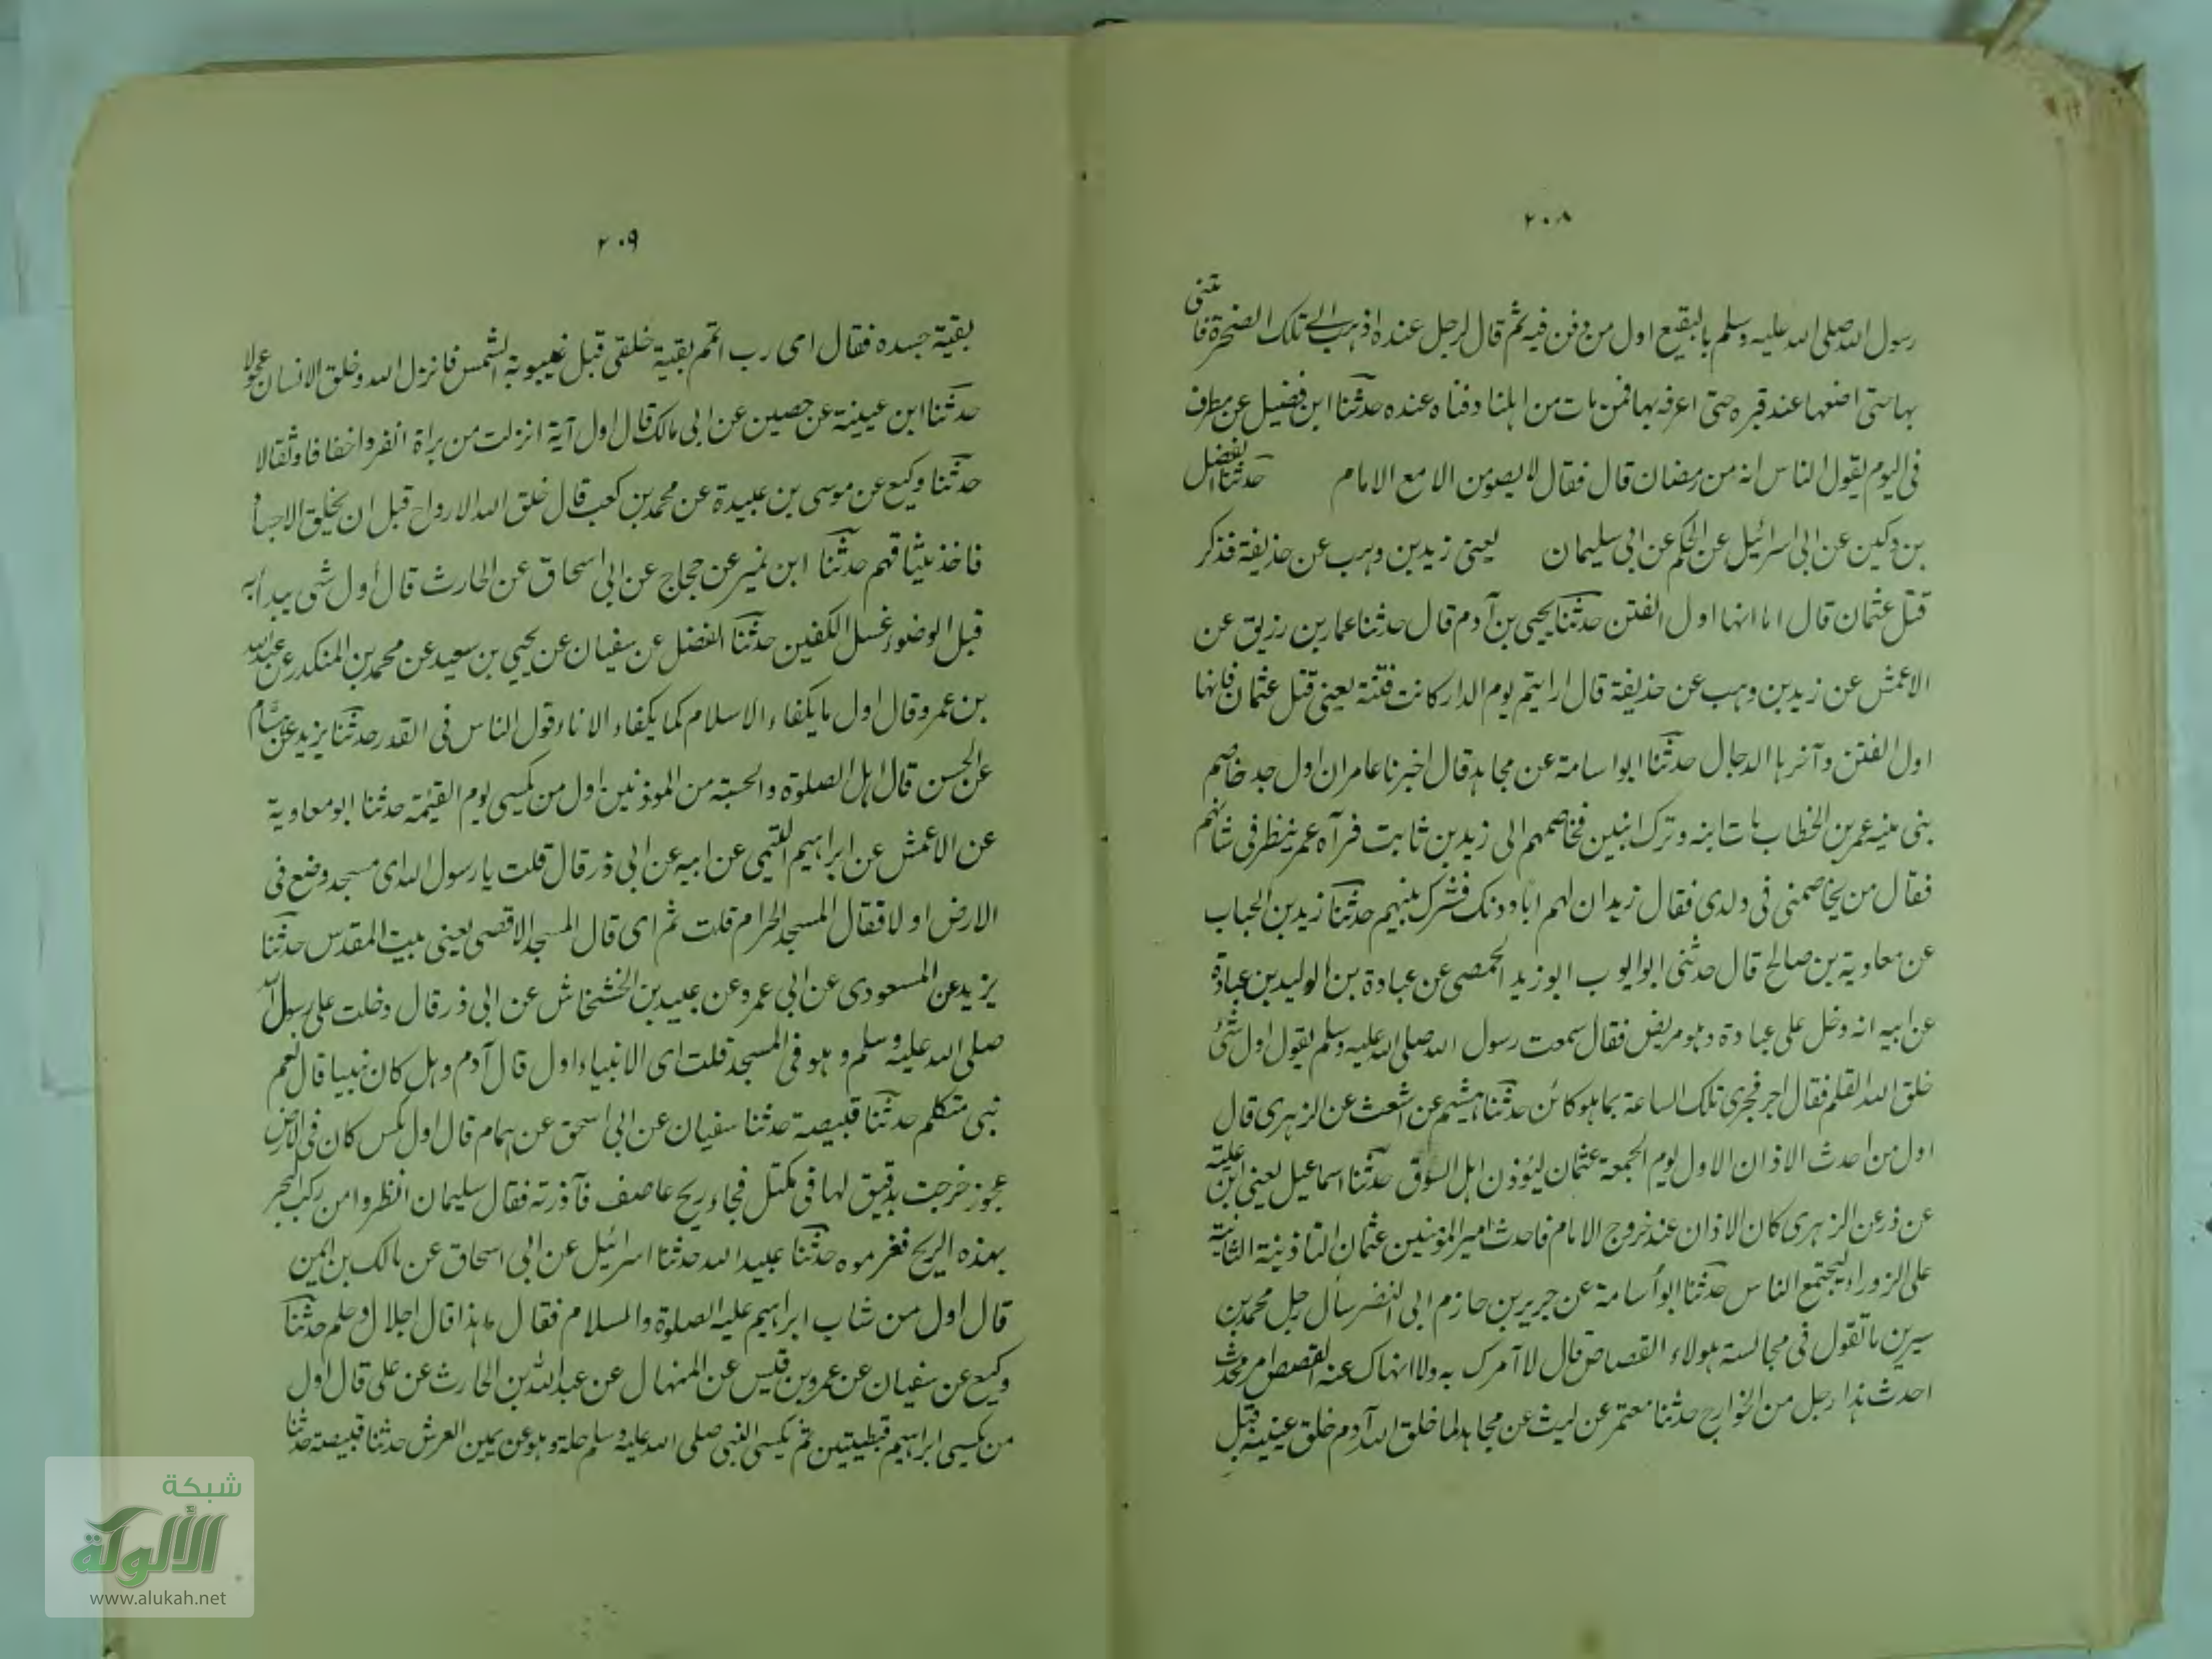 ٢٠٨
رسول الله صلى الله عليه وسلم بالبقيع اول من دفن فيه ثم قال لرجل عنده اذهب الى تلك الصخرة فأتنى
بها حتى اضعها عند قبره حتى اعرفه بها فمن مات من اهلنا دفناه عنده حدثنا ابن فضيل عن مطرف
فى اليوم يقول الناس انه من رمضان قال فقال لا يصومن الا مع الامام حدثنا الفضل
بن دكين عن ابى اسرائيل عن الحكم عن ابى سليمان يعنى زيد بن وهب عن حذيفة فذكر
قتل عثمان قال اما انها اول الفتن حدثنا يحيى بن آدم قال حدثنا عمار بن رزيق عن
الاعمش عن زيد بن وهب عن حذيفة قال ارايتم يوم الدار كانت فتنة يعنى قتل عثمان فانها
اول الفتن وآخرها الدجال حدثنا ابو اسامة عن مجاهد قال اخبرنا عامر ان اول جد خاصم
بنى بنيه عمر بن الخطاب مات ابنه وترك ابنين فخاصمهم الى زيد بن ثابت فرآه عمر ينظر فى شانهم
فقال من يخاصمنى فى ولدى فقال زيد ان لهم ابا دونك فشرك بينهم حدثنا زيد بن الحباب
عن معاوية بن صالح قال حدثنى ابو ايوب ابو زيد الحمصى عن عبادة بن الوليد بن عبادة
عن ابيه انه دخل على عبادة وهو مريض فقال سمعت رسول الله صلى الله عليه وسلم يقول اول شئ
خلق الله القلم فقال اجر فجرى تلك الساعة بما هو كائن حدثنا هشيم عن اشعث عن الزهرى قال
اول من احدث الاذان الاول يوم الجمعة عثمان ليؤذن اهل السوق حدثنا اسماعيل يعنى ابن علية
عن ذر عن الزهرى كان الاذان عند خروج الامام فاحدث امير المؤمنين عثمان التاذينة الثانية
على الزوراء ليجتمع الناس حدثنا ابو أسامة عن جرير بن حازم ابى النضر سأل رجل محمد بن
سيرين ما تقول فى مجالسة هولاء القصاص قال لا آمرك به ولا انهاك عنه القصص امر محدث
احدث هذا رجل من الخوارج حدثنا معتمر عن ليث عن مجاهد لما خلق الله آدم خلق عينيه قبل
٢٠٩
بقية جسده فقال اى رب اتمم بقية خلقى قبل غيبوبة الشمس فانزل الله وخلق الانسان عجولا
حدثنا ابن عيينة عن حصين عن ابى مالك قال اول آية انزلت من براة انفروا خفافا وثقالا
حدثنا وكيع عن موسى بن عبيدة عن محمد بن كعب قال خلق الله الارواح قبل ان يخلق الاجساد
فاخذ ميثاقهم حدثنا ابن نمير عن حجاج عن ابى اسحاق عن الحارث قال أول شى يبدأ به
قبل الوضوء غسل الكفين حدثنا الفضل عن سفيان عن يحيي بن سعيد عن محمد بن المنكدر عن عبد الله
بن عمرو قال اول ما يكفاء الاسلام كما يكفاء الاناء قول الناس فى القدر حدثنا يزيد عن هشام
عن الحسن قال اهل الصلوة والحسبة من الموذنين اول من يكسى يوم القيمة حدثنا ابو معاوية
عن الاعمش عن ابراهيم التيمى عن ابيه عن ابى ذر قال قلت يا رسول الله اى مسجد وضع فى
الارض اولا فقال المسجد الحرام قلت ثم اى قال المسجد الاقصى يعنى بيت المقدس حدثنا
يزيد عن المسعودى عن ابى عمرو عن عبيد بن الخشخاش عن ابى ذر قال دخلت على رسول الله
صلى الله عليه وسلم وهو فى المسجد قلت اى الانبياء اول قال آدم وهل كان نبيا قال نعم
نبى متكلم حدثنا قبيصة حدثنا سفيان عن ابى اسحق عن همام قال اول مكس كان فى الارض
عجوز خرجت بدقيق لها فى مكتل فجاء ريح عاصف فآذرته فقال سليمان انظروا من ركب البحر
بهذه الريح فغرموه حدثنا عبيد الله حدثنا اسرائيل عن ابى اسحاق عن مالك بن ايمن
قال اول من شاب ابراهيم عليه الصلوة والسلام فقال ما هذا قال اجلال وحلم حدثنا
وكيع عن سفيان عن عمرو بن قيس عن المنهال عن عبد الله بن الحارث عن على قال اول
من يكسى ابراهيم قبطيتين ثم يكسى النبى صلى الله عليه وسلم حلة وهو عن يمين العرش حدثنا قبيصة حدثنا
شبكة
الألوكة
www.alukah.net